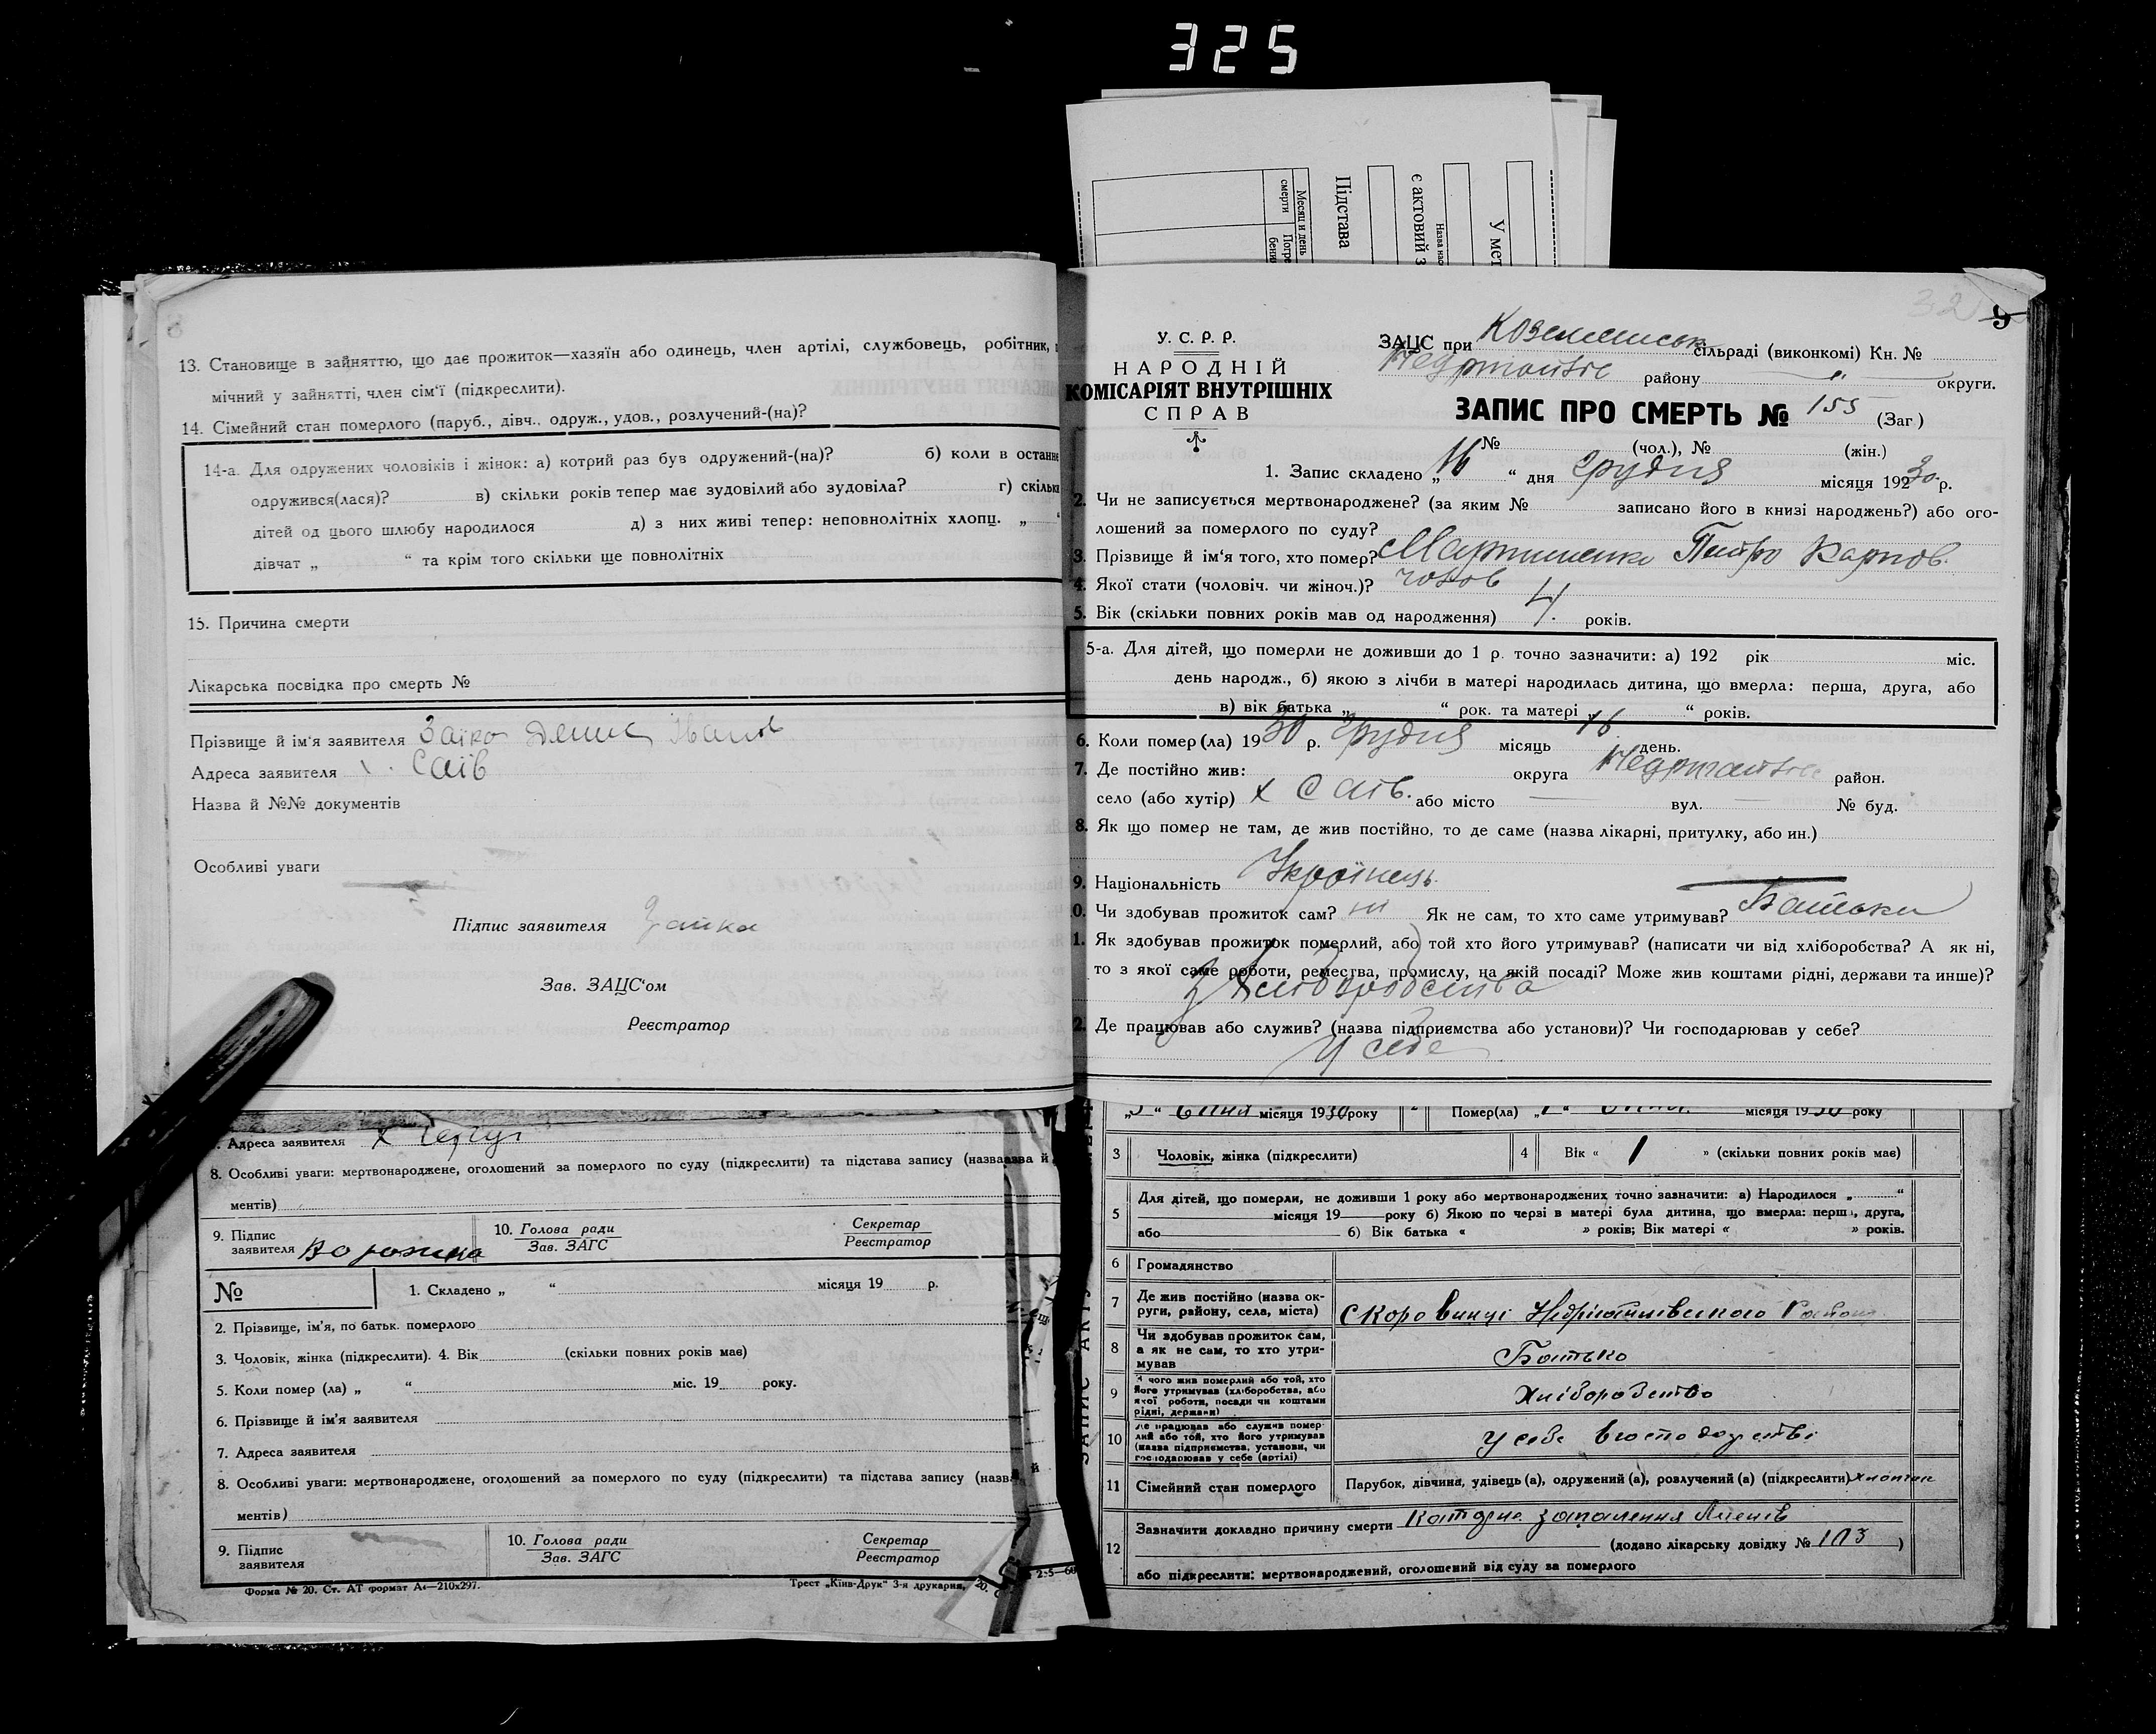 325
Месяц и день
смерти
Погре
бени
Підстава
є актовий з
Назва нас
У мет
13. Становище в зайняттю, що дає прожиток—хазяїн або одинець, член артілі, службовець, робітник,
мічний у зайнятті, член сім‘ї (підкреслити).
14. Сімейний стан померлого (паруб., дівч., одруж., удов., розлучений-(на)?
14-а. Для одружених чоловіків і жінок: а) котрий раз був одружений-(на)? б) коли в останнє
одружився(лася)? в) скільки років тепер має зудовілий або зудовіла? г) скільки
дітей од цього шлюбу народилося д) з них живі тепер: неповнолітніх хлопц. „ “
дівчат „ “ та крім того скільки ще повнолітніх
15. Причина смерти
Лікарська посвідка про смерть №
Прізвище й ім‘я заявителя Заїка Денис Іванов
Адреса заявителя х. Саїв
Назва й №№ документів
Особливі уваги
Підпис заявителя Заїка
Зав. ЗАЦС‘ом
Реєстратор
. Адреса заявителя х
8. Особливі уваги: мертвонароджене, оголошений за померлого по суду (підкреслити) та підстава запису (назва й
ментів)
9. Підпис
заявителя
10. Голова ради
Зав. ЗАГС
Секретар
Реєстратор
№ 1. Складено „ “ місяця 19 р.
2. Прізвище, ім’я, по батьк. померлого
3. Чоловік, жінка (підкреслити). 4. Вік (скільки повних років має)
5. Коли помер (ла) „ “ міс. 19 року.
6. Прізвище й ім’я заявителя
7. Адреса заявителя
8. Особливі уваги: мертвонароджене, оголошений за померлого по суду (підкреслити) та підстава запису (назва й
ментів)
9. Підпис
заявителя
10. Голова ради
Зав. ЗАГС
Секретар
Реєстратор
Форма № 20. Ст. АТ формат А4—210х297.
Трест „Київ-Друк“ 3-я друкарня,
9
У. С. Р. Р.
НАРОДНІЙ
КОМІСАРІЯТ ВНУТРІШНІХ
СПРАВ
ЗАЦС при сільраді (виконкомі) Кн. №
району „ округи.
ЗАПИС ПРО СМЕРТЬ № 155 (Заг)
№ (чол.), № (жін.)
1. Запис складено „16“ дня грудня місяця 1930 р.
2. Чи не записується мертвонароджене? (за яким № записано його в книзі народжень?) або ого-
лошений за померлого по суду?
3. Прізвище й ім‘я того, хто помер? Мартиненко Петро Карпов.
4. Якої стати (чоловіч. чи жіноч.)? чолов
5. Вік (скільки повних років мав од народження) 4. років.
5-а. Для дітей, що померли не доживши до 1 р. точно зазначити: а) 192 рік міс.
день народж., б) якою з лічби в матері народилась дитина, що вмерла: перша, друга, або
в) вік батька „ “ рок. та матері „ “ років.
6. Коли помер(ла) 1930 р. грудня місяць 16 день.
7. Де постійно жив: округа район.
село (або хутір) х Саїв. або місто — вул. — № буд.
8. Як що помер не там, де жив постійно, то де саме (назва лікарні, притулку, або ин.)
9. Національність Українець
0. Чи здобував прожиток сам? ні Як не сам, то хто саме утримував? Батьки
1. Як здобував прожиток померлий, або той хто його утримував? (написати чи від хліборобства? А як ні,
то з якої саме роботи, ремества, промислу, на якій посаді? Може жив коштами рідні, держави та инше)?
З Хліборобства
2. Де працював або служив? (назва підприємства або установи)? Чи господарював у себе?
У себе
місяця 1930 року Помер(ла) місяця 1930 року
3 Чоловік, жінка (підкреслити) 4 Вік « 1 » (скільки повних років має)
5 Для дітей, що померли, не доживши 1 року або мертвонароджених точно зазначити: а) Народилося „ “
місяця 19 року б) Якою по черзі в матері була дитина, що вмерла: перша, друга,
або б) Вік батька « » років; Вік матері « » років.
6 Громадянство
7 Де жив постійно (назва ок-
руги, району, села, міста)
8 Чи здобував прожиток сам,
а як не сам, то хто утри-
мував
Батько
9 З чого жив померлий або той, хто
його утримував (хліборобства, або
якої роботи, посади чи коштами
рідні, держави)
Хліборобство
10 Де працював або служив помер-
лий або той, хто його утримував
(назва підприємства, установи, чи
господарював у себе (артілі)
У себе в господарстві
11 Сімейний стан померлого Парубок, дівчина, удівець(а), одружений(а), розлучений(а) (підкреслити)
12 Зазначити докладно причину смерти запалення
(додано лікарську довідку № )
або підкреслити: мертвонароджений, оголошений від суду за померлого